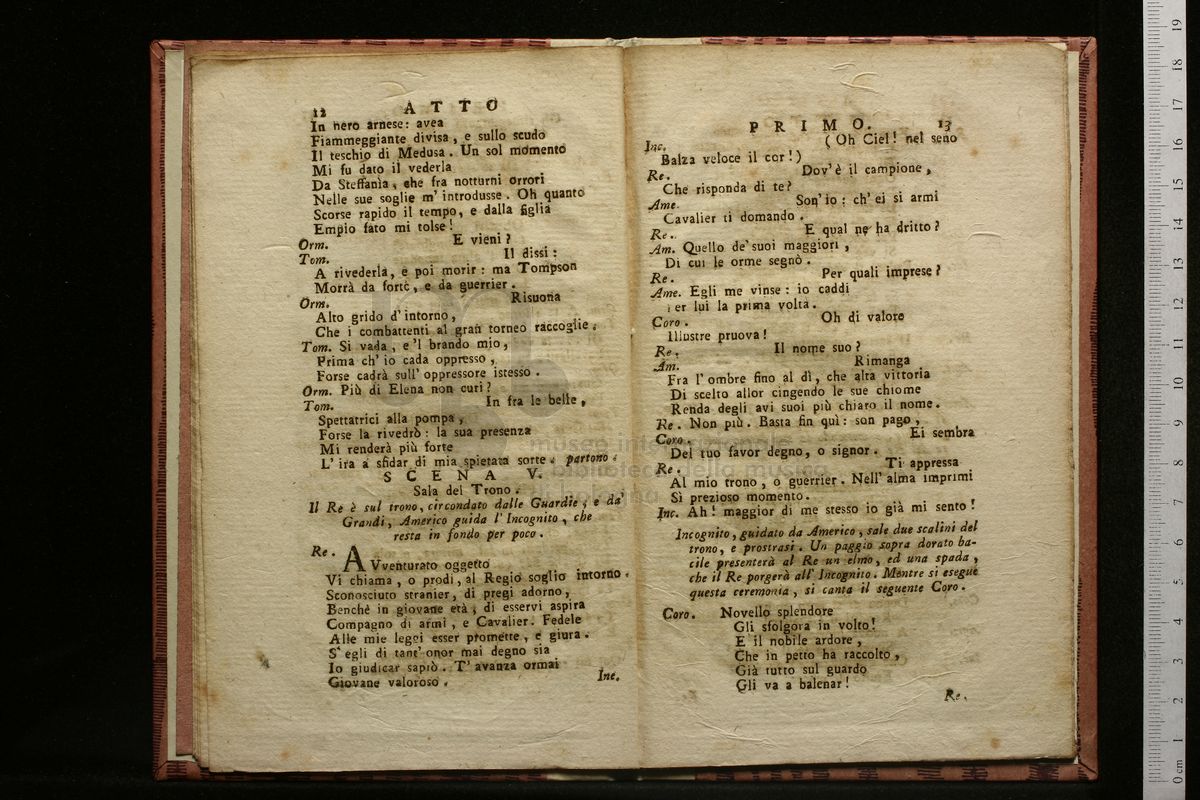 12 ATTO
In nero arnese: avea
Fiammeggiante divisa, e sullo scudo
Il teschio di Medusa. Un sol momento
Mi fu dato il vederla
Da Steffanìa, che fra notturni orrori
Nelle sue soglie m' introdusse. Oh quanto
Scorse rapido il tempo, e dalla figlia
Empio fato mi tolse!
Orm. E vieni?
Tom. Il dissi:
A rivederla, e poi morir: ma Tompson
Morrà da forte, e da guerrier.
Orm. Risuona
Alto grido d' intorno,
Che i combattenti al gran torneo raccoglie.
Tom. Si vada, e 'l brando mio,
Prima ch' io cada oppresso,
Forse cadrà sull' oppressore istesso.
Orm. Più di Elena non curi?
Tom. In fra le belle,
Spettatrici alla pompa,
Forse la rivedrò: la sua presenza
Mi renderà più forte
L' ira a sfidar di mia spietata sorte. partono.
SCENA V.
Sala del Trono.
Il Re è sul trono, circondato dalle Guardie, e da'
Grandi, Americo guida l' Incognito, che
resta in fondo per poco.
Re. AVventurato oggetto
Vi chiama, o prodi, al Regio soglio intorno.
Sconosciuto stranier, di pregi adorno,
Benchè in giovane età, di esservi aspira
Compagno di armi, e Cavalier. Fedele
Alle mie leggi esser promette, e giura.
S' egli di tant' onor mai degno sia
Io giudicar saprò. T' avanza ormai
Giovane valoroso.
Inc.
PRIMO. 13
Inc. (Oh Ciel! nel seno
Balza veloce il cor!)
Re. Dov' è il campione,
Che risponda di te?
Ame. Son' io: ch' ei si armi
Cavalier ti domando.
Re. E qual ne ha dritto?
Am. Quello de' suoi maggiori,
Di cui le orme segnò.
Re. Per quali imprese?
Ame. Egli me vinse: io caddi
Per lui la prima volta.
Coro. Oh di valore
Illustre pruova!
Re. Il nome suo?
Am. Rimanga
Fra l' ombre fino al dì, che alta vittoria
Di scelto allor cingendo le sue chiome
Renda degli avi suoi più chiaro il nome.
Re. Non più. Basta fin quì: son pago,
Coro. Ei sembra
Del tuo favor degno, o signor.
Re. Ti appressa
Al mio trono, o guerrier. Nell' alma imprimi
Sì prezioso momento.
Inc. Ah! maggior di me stesso io già mi sento!
Incognito, guidato da Americo, sale due scalini del
trono, e prostrasi. Un paggio sopra dorato ba-
cile presenterà al Re un elmo, ed una spada,
che il Re porgerà all' Incognito. Mentre si esegue
questa ceremonia, si canta il seguente Coro.
Coro. Novello splendore
Gli sfolgora in volto!
E il nobile ardore,
Che in petto ha raccolto,
Già tutto sul guardo
Gli va a balenar!
Re.
museo internazionale
biblioteca della musica
di bologna
0 cm 1 2 3 4 5 6 7 8 9 10 11 12 13 14 15 16 17 18 19